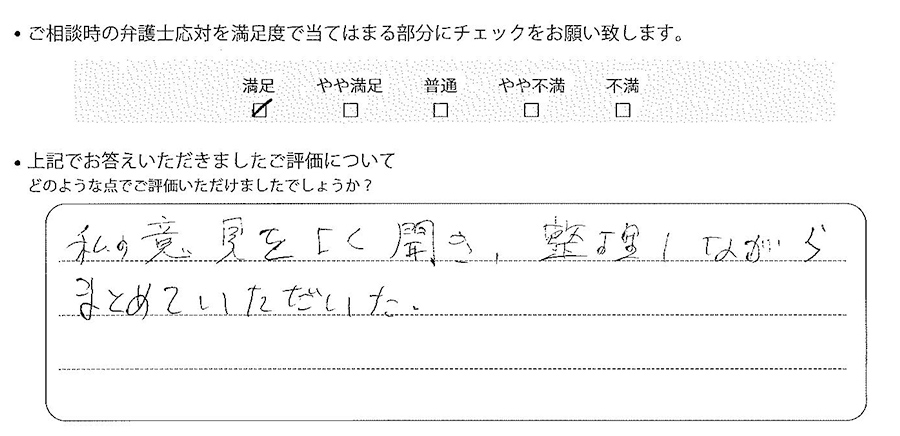 • ご相談時の弁護士応対を満足度で当てはまる部分にチェックをお願い致します。
満足 やや満足 普通 やや不満 不満
☑ □ □ □ □
• 上記でお答えいただきましたご評価について
どのような点でご評価いただけましたでしょうか？
私の意見をよく聞き、整理しながら
まとめていただいた。